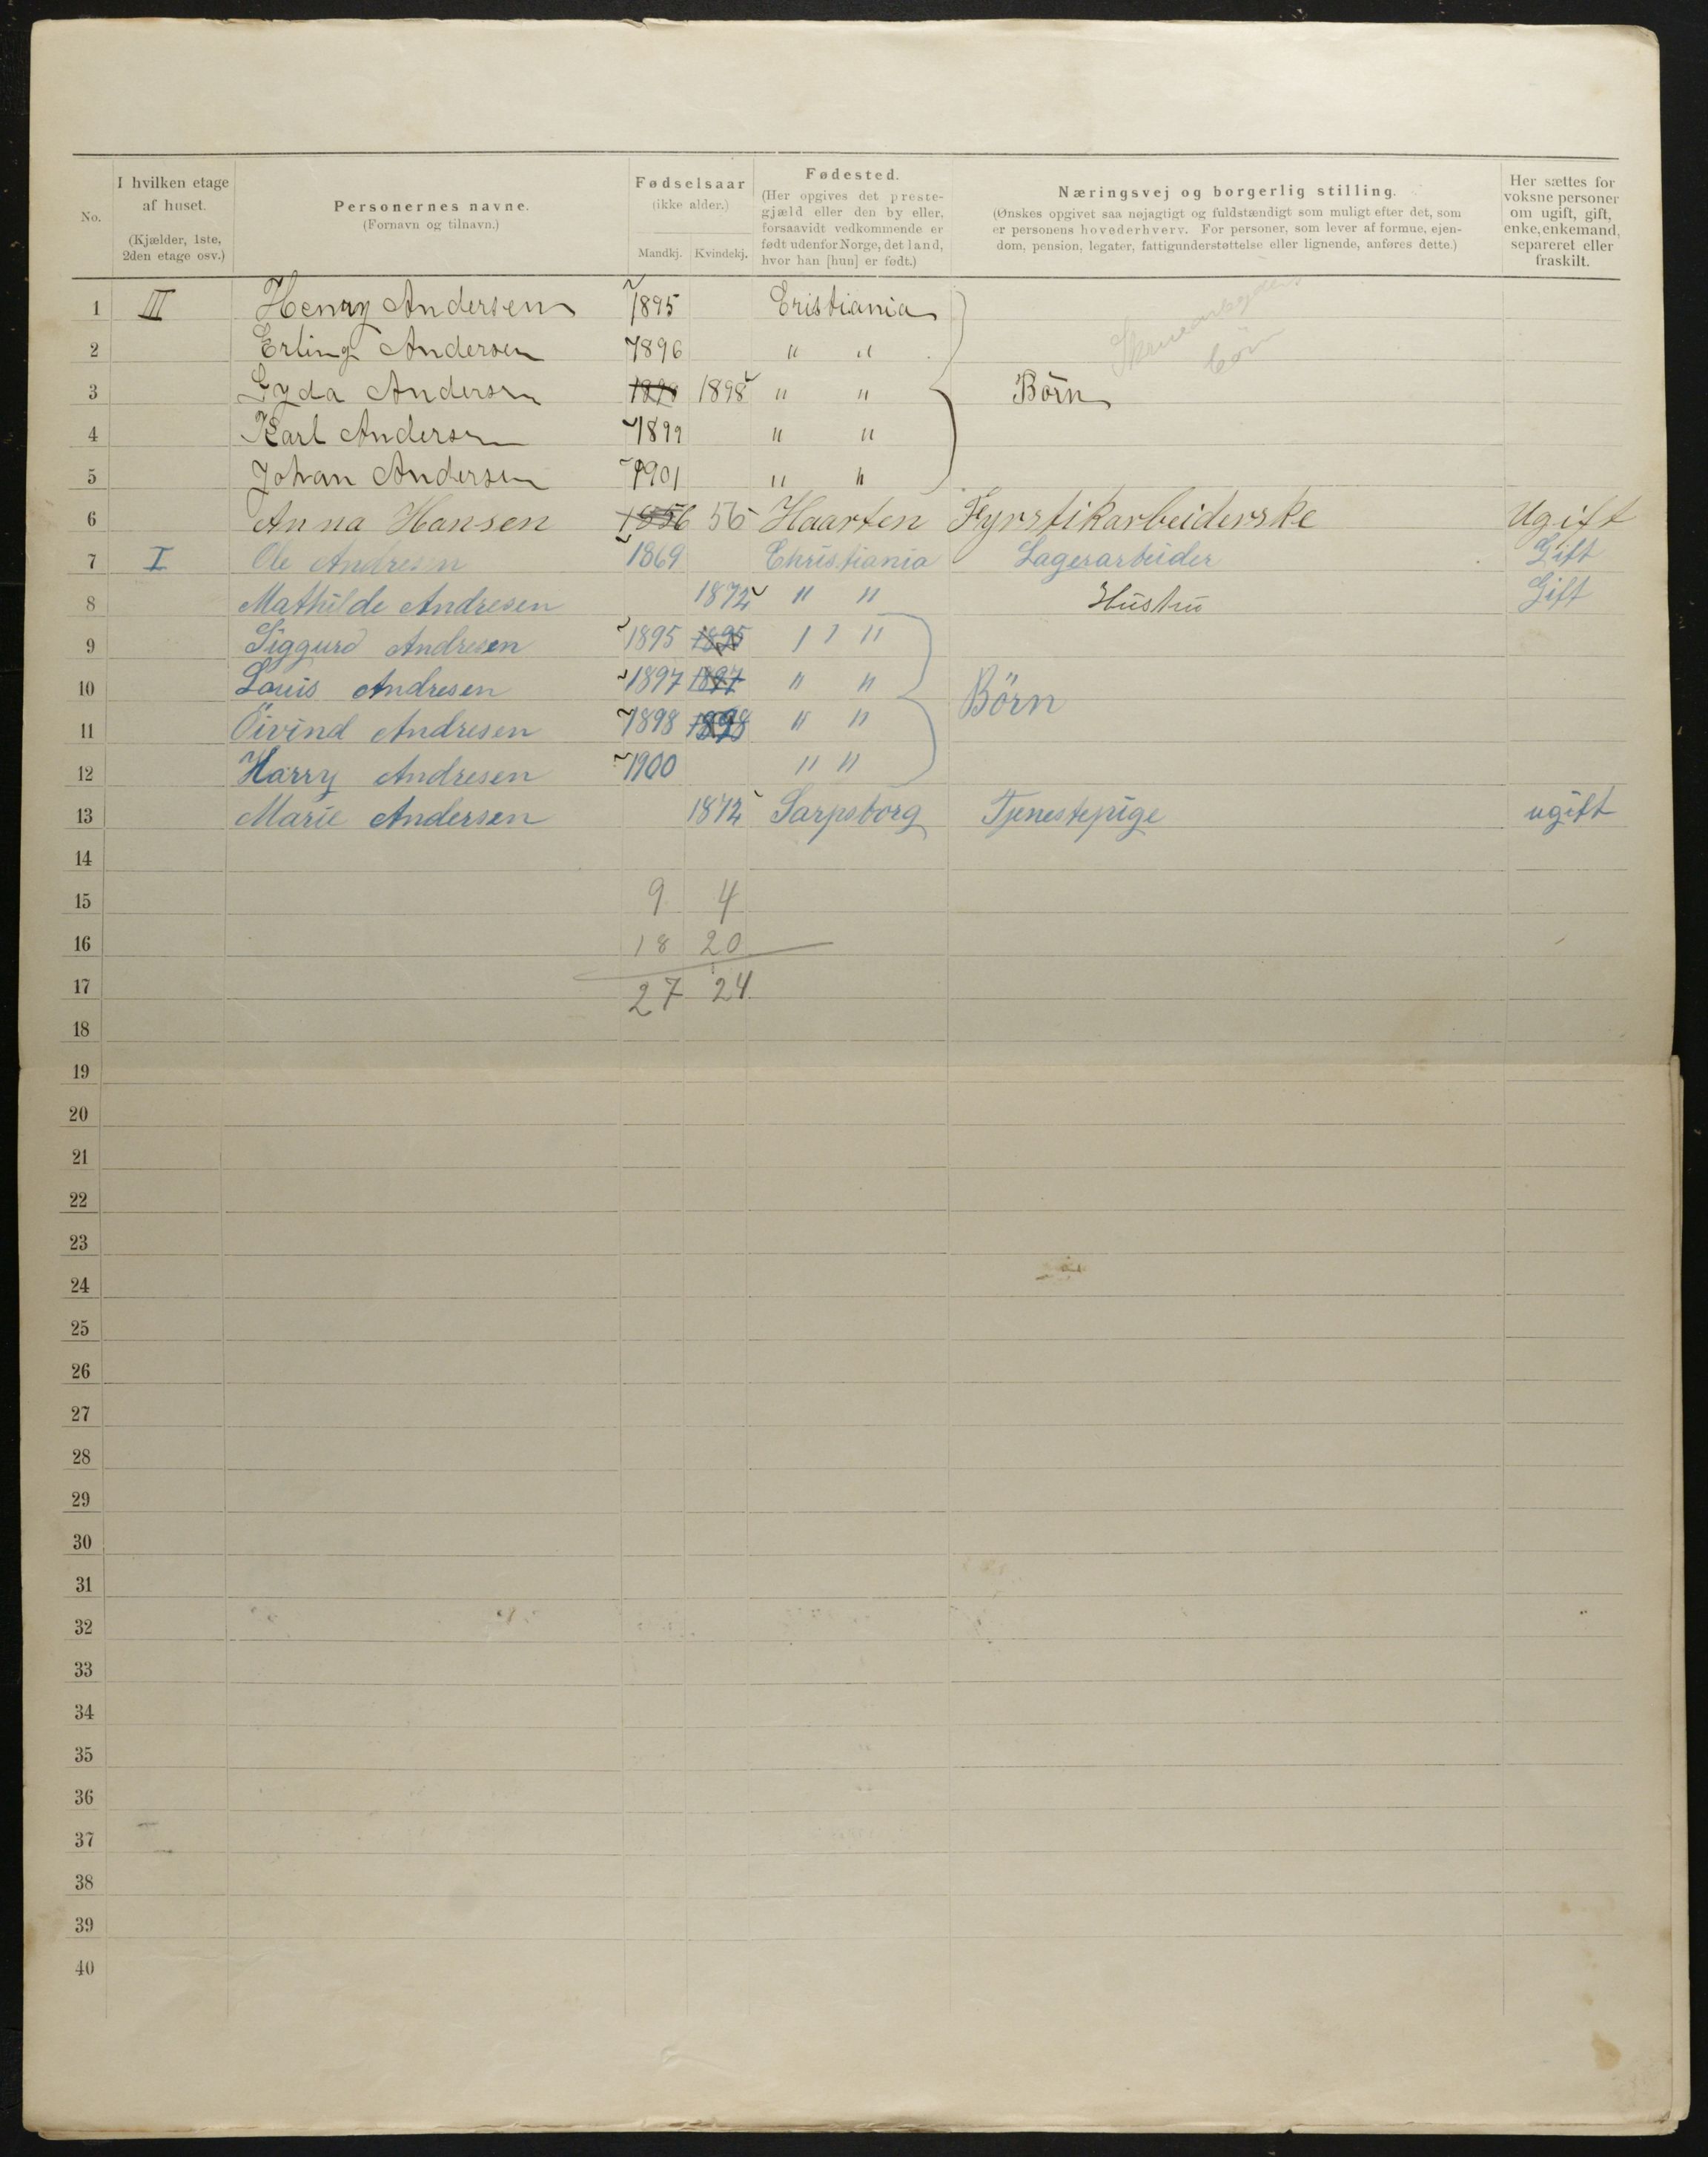 No.
I hvilken etage af huset.
(Kjælder, 1ste, 2den etage osv.)
Personernes navne.
(Fornavn og tilnavn.)
Fødselsaar
(ikke alder.)
Mandkj. Kvindekj.
Fødested.
(Her opgives det prestegjæld eller den by eller, forsaavidt vedkommende er født udenfor Norge, det land, hvor han [hun] er født.)
Næringsvej og borgerlig stilling.
(Ønskes opgivet saa nøjagtigt og fuldstændigt som muligt efter det, som er personens hovederhverv. For personer, som lever af formue, ejendom, pension, legater, fattigunderstøttelse eller lignende, anføres dette.)
Her sættes for voksne personer om ugift, gift, enke, enkemand, separeret eller fraskilt.
1 III Henry Andersen 1895 Cristiania
2 Erling Andersen 1896 " "
3 Lyda Andersen 1898 " " Börn
4 Karl Andersen 1899 " "
5 Johan Andersen 1901 " "
6 Anna Hansen 1856 56 Haarten Fyrstikarbeiderske Ugift
7 I Ole Andresen 1869 Christiania Lagerarbeider Gift
8 Mathilde Andresen 1872 " " Hustru Gift
9 Siggurd Andresen 1895 1895 " "
10 Louis Andresen 1897 1897 " " Börn
11 Öivind Andresen 1898 1898 " "
12 Harry Andresen 1900 " "
13 Marie Andersen 1872 Sarpsborg Tjenestepige ugift
14
15 9 4
16 18 20
17 27 24
18
19
20
21
22
23
24
25
26
27
28
29
30
31
32
33
34
35
36
37
38
39
40